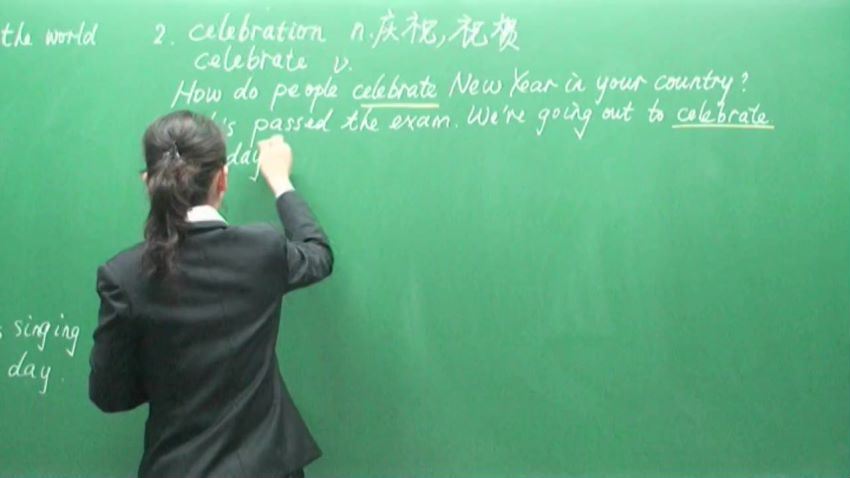 the world
2. celebration n. 庆祝, 祝贺
celebrate v.
How do people celebrate New Year in your country?
's passed the exam. We're going out to celebrate.
day
singing
day.